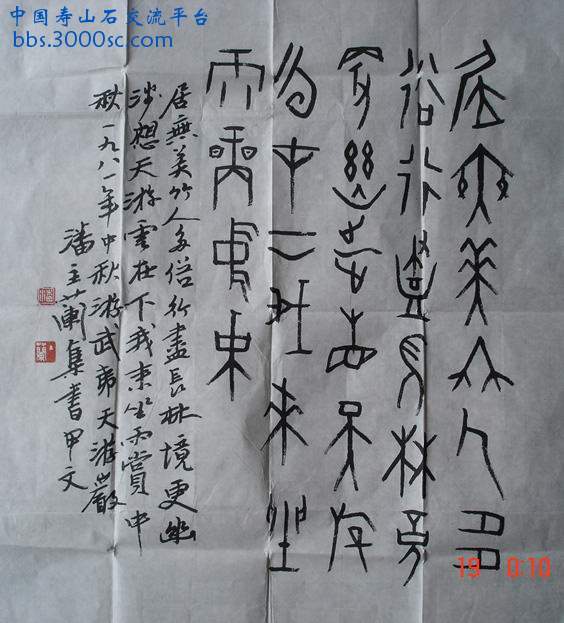 中国寿山石交流平台
bbs.3000sc.com
居無美竹人多
俗行盡長林境
更幽涉想天游
雲在下我来坐
雨賞中秋
居無美竹人多俗行盡長林境更幽
涉想天游雲在下我来坐雨賞中
秋一九八一年中秋游武夷天游巖
潘主蘭集書甲文
19 0:10